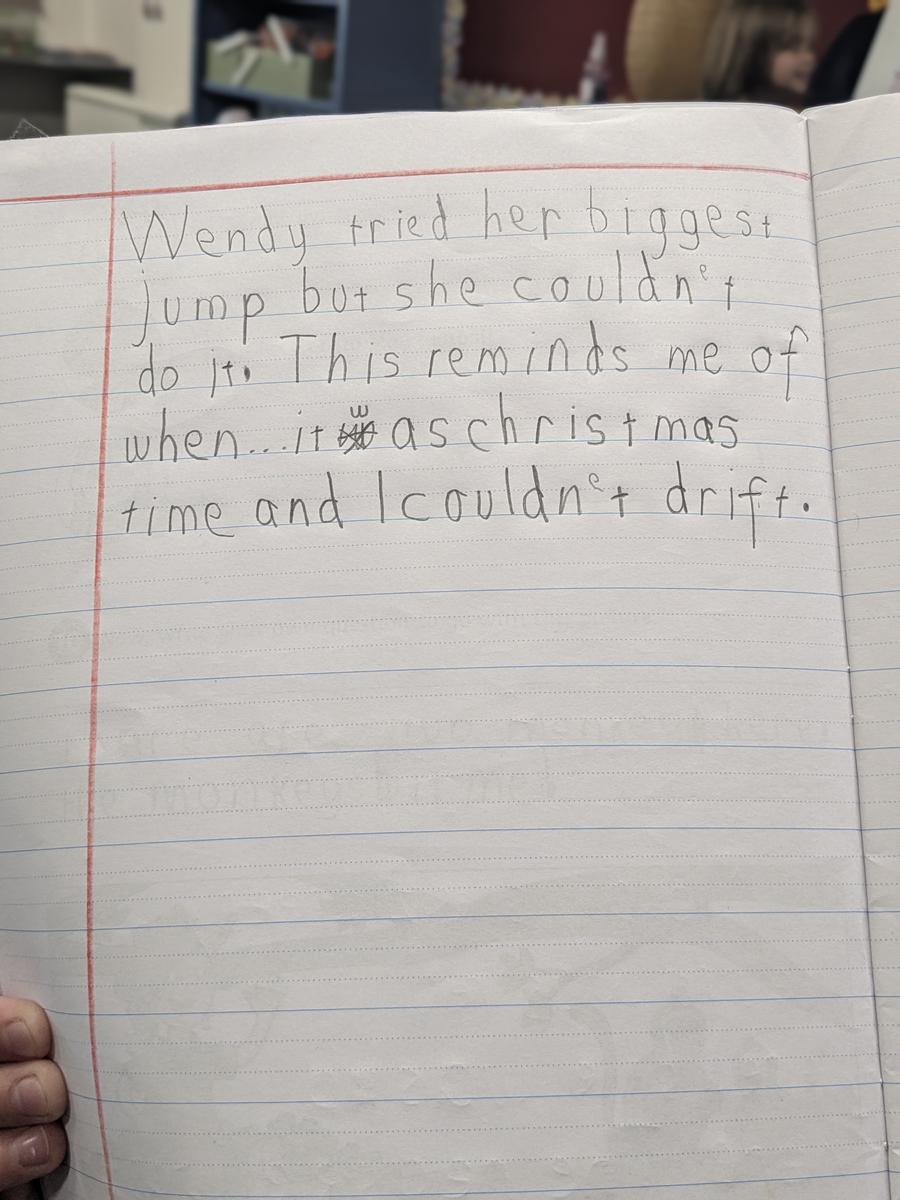 Wendy tried her biggest
jump but she couldn't
do it. This reminds me of
when...it was christmas
time and I couldn't drift.